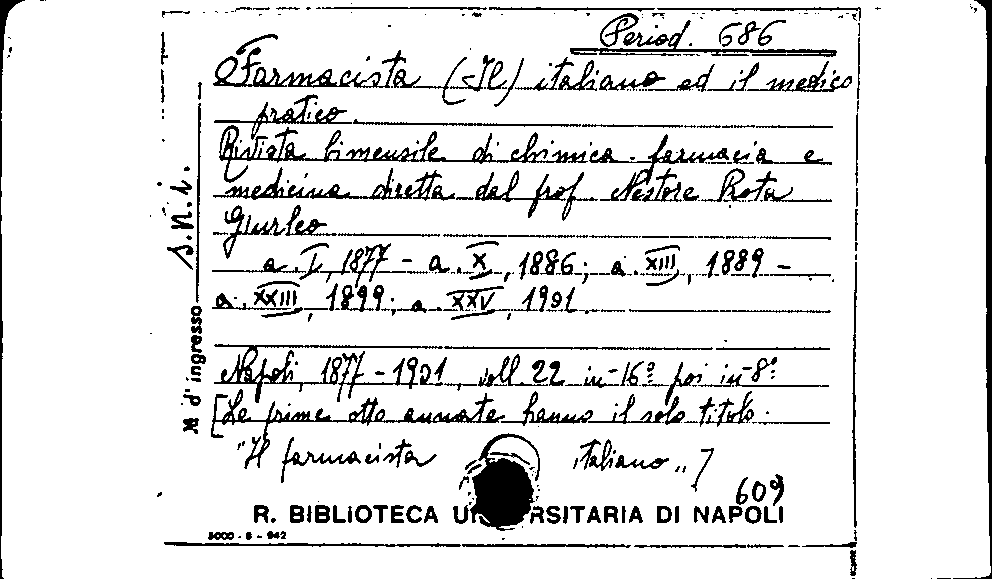 Period. 686
Farmacista (Il) italiano ed il medico
pratico.
Rivista bimensile di chimica - farmacia e
medicina diretta dal prof. Nestore Rota
Giurleo
a. I, 1877 - a. X, 1886; a. XIII, 1889 -
a. XXIII, 1899; a. XXV, 1901.
Napoli, 1877 - 1901, voll. 22 in-16º poi in-8º
[Le prime otto annate hanno il solo titolo.
"Il farmacista italiano"]
609
R. BIBLIOTECA UNIVERSITARIA DI NAPOLI
5000 - 5 - 942
N d'ingresso S.N.i.